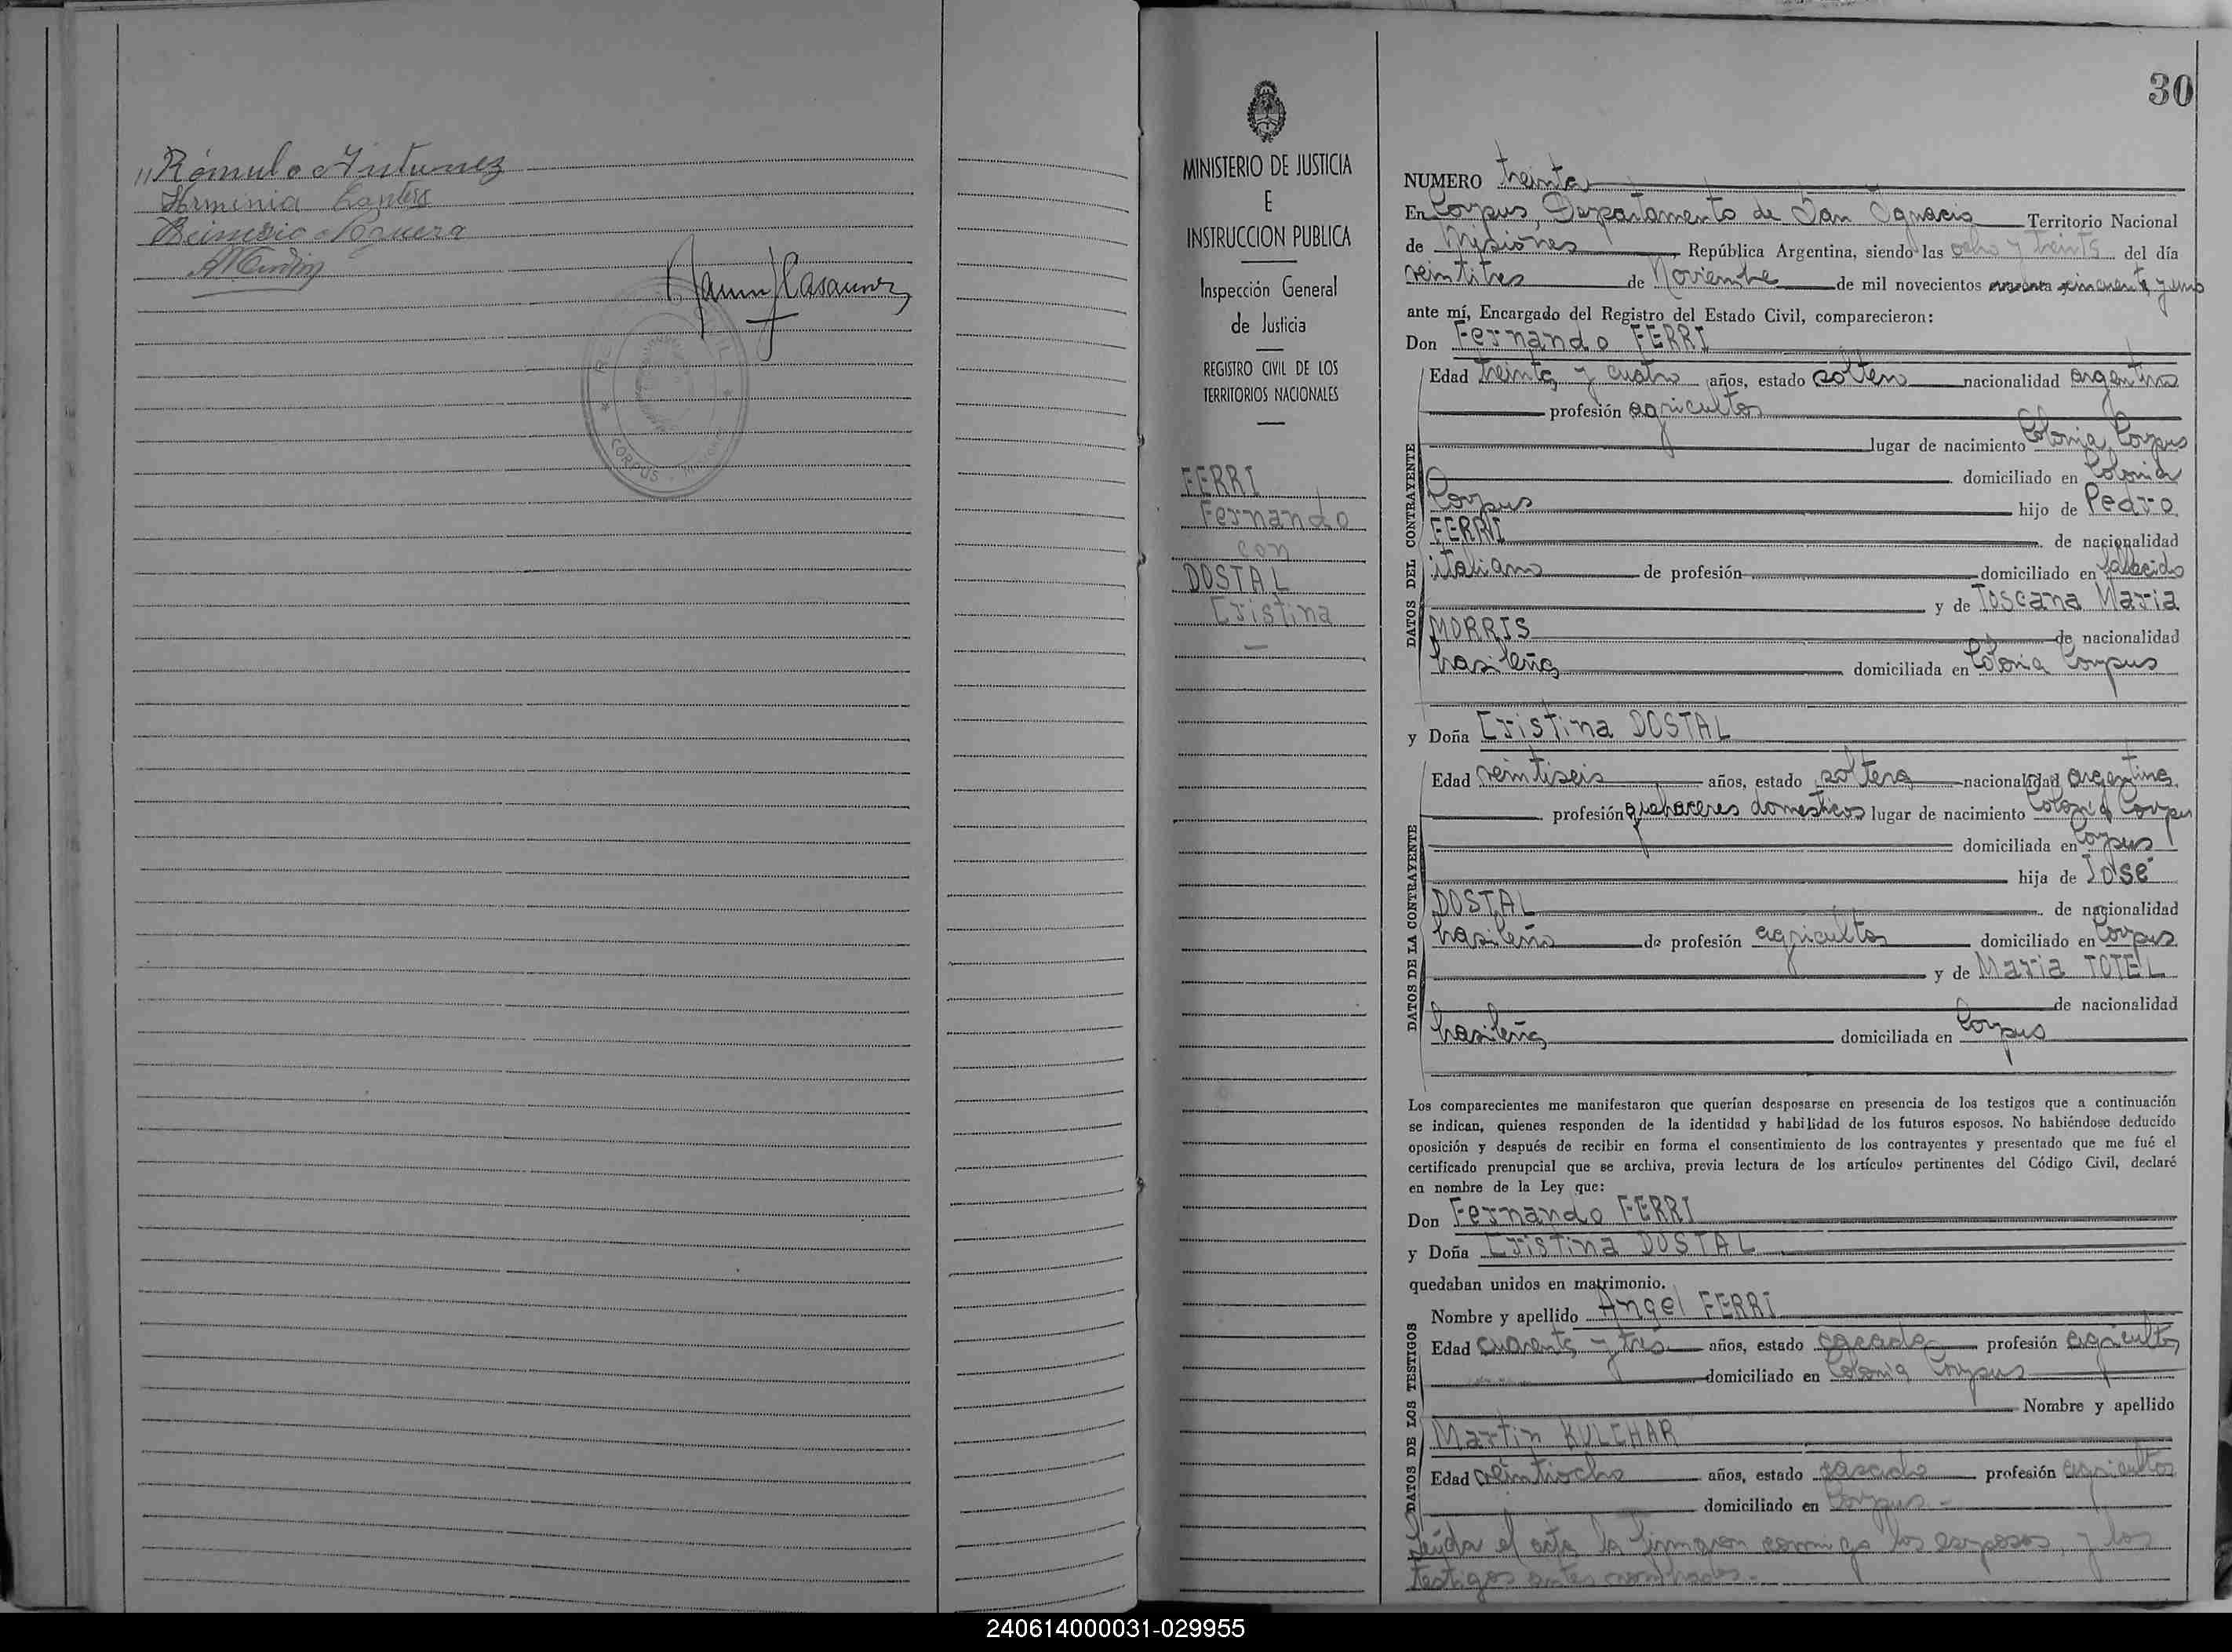 " Rómulo Antunez
Herminia
Nemesio Noguera
CORPUS
MINISTERIO DE JUSTICIA
E
INSTRUCCION PUBLICA
Inspección General
de Justicia
REGISTRO CIVIL DE LOS
TERRITORIOS NACIONALES
FERRI
Fernando
con
DOSTAL
Cristina
30
NUMERO treinta
En Corpus, Departamento de San Ignacio Territorio Nacional
de Misiones República Argentina, siendo las ocho y treinta del día
veintitres de Noviembre de mil novecientos cincuenta y uno
ante mí, Encargado del Registro del Estado Civil, comparecieron:
Don Fernando FERRI
DATOS DEL CONTRAYENTE
Edad treinta y cuatro años, estado soltero nacionalidad argentina
profesión agricultor
lugar de nacimiento Colonia Corpus
domiciliado en Colonia
Corpus hijo de Pedro
FERRI de nacionalidad
italiano de profesión domiciliado en fallecido
y de Toscana Maria
MORRIS de nacionalidad
brasileña domiciliada en Colonia Corpus
y Doña Cristina DOSTAL
DATOS DE LA CONTRAYENTE
Edad veintiseis años, estado soltera nacionalidad argentina
profesión quehaceres domesticos lugar de nacimiento Colonia Corpus
domiciliada en Corpus
hija de José
DOSTAL de nacionalidad
brasileño de profesión agricultor domiciliado en Corpus
y de Maria TOTEL
de nacionalidad
brasileña domiciliada en Corpus
Los comparecientes me manifestaron que querían desposarse en presencia de los testigos que a continuación
se indican, quienes responden de la identidad y habilidad de los futuros esposos. No habiéndose deducido
oposición y después de recibir en forma el consentimiento de los contrayentes y presentado que me fué el
certificado prenupcial que se archiva, previa lectura de los artículos pertinentes del Código Civil, declaré
en nombre de la Ley que:
Don Fernando FERRI
y Doña Cristina DOSTAL
quedaban unidos en matrimonio.
DATOS DE LOS TESTIGOS
Nombre y apellido Angel FERRI
Edad cuarenta y tres años, estado casado profesión agricultor
domiciliado en Colonia Corpus
Nombre y apellido
Martin KULCHAR
Edad veintiocho años, estado casado profesión agricultor
domiciliado en Corpus -
Leída el acta la firmaron conmigo los esposos, y los
testigos antes nombrados.-
240614000031-029955